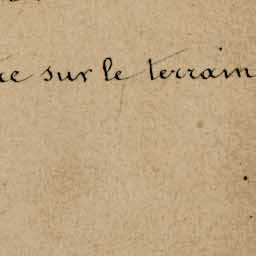 re sur le terrain